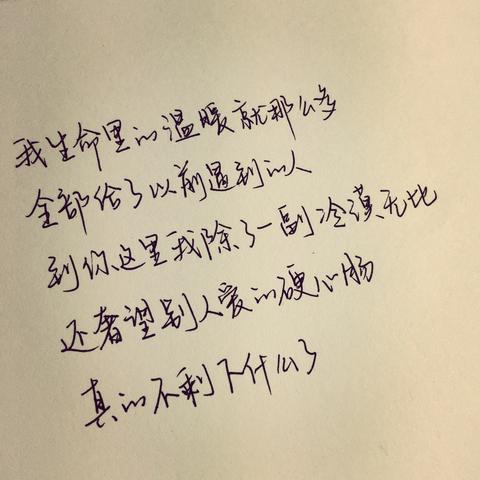 我生命里的温暖就那么多
全部给了以前遇到的人
到你这里我除了一副冷漠无比
还奢望别人爱的硬心肠
真的不剩下什么了